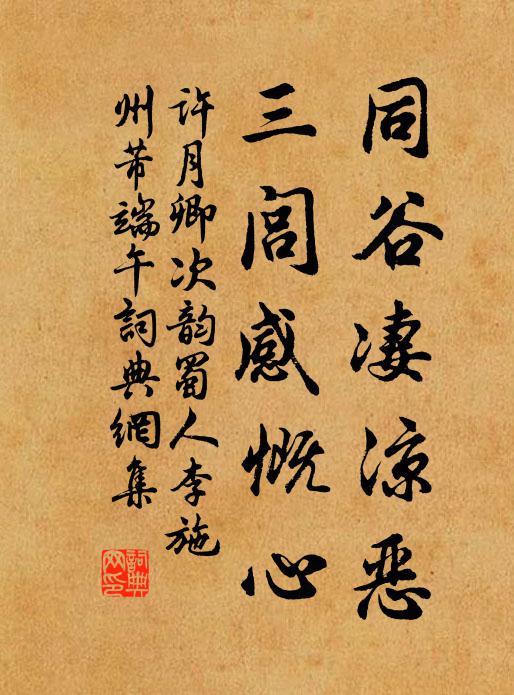 同谷凄凉恶
三闾感慨心
许月卿次韵蜀人李施
州芾端午詞典網集
詞典网印